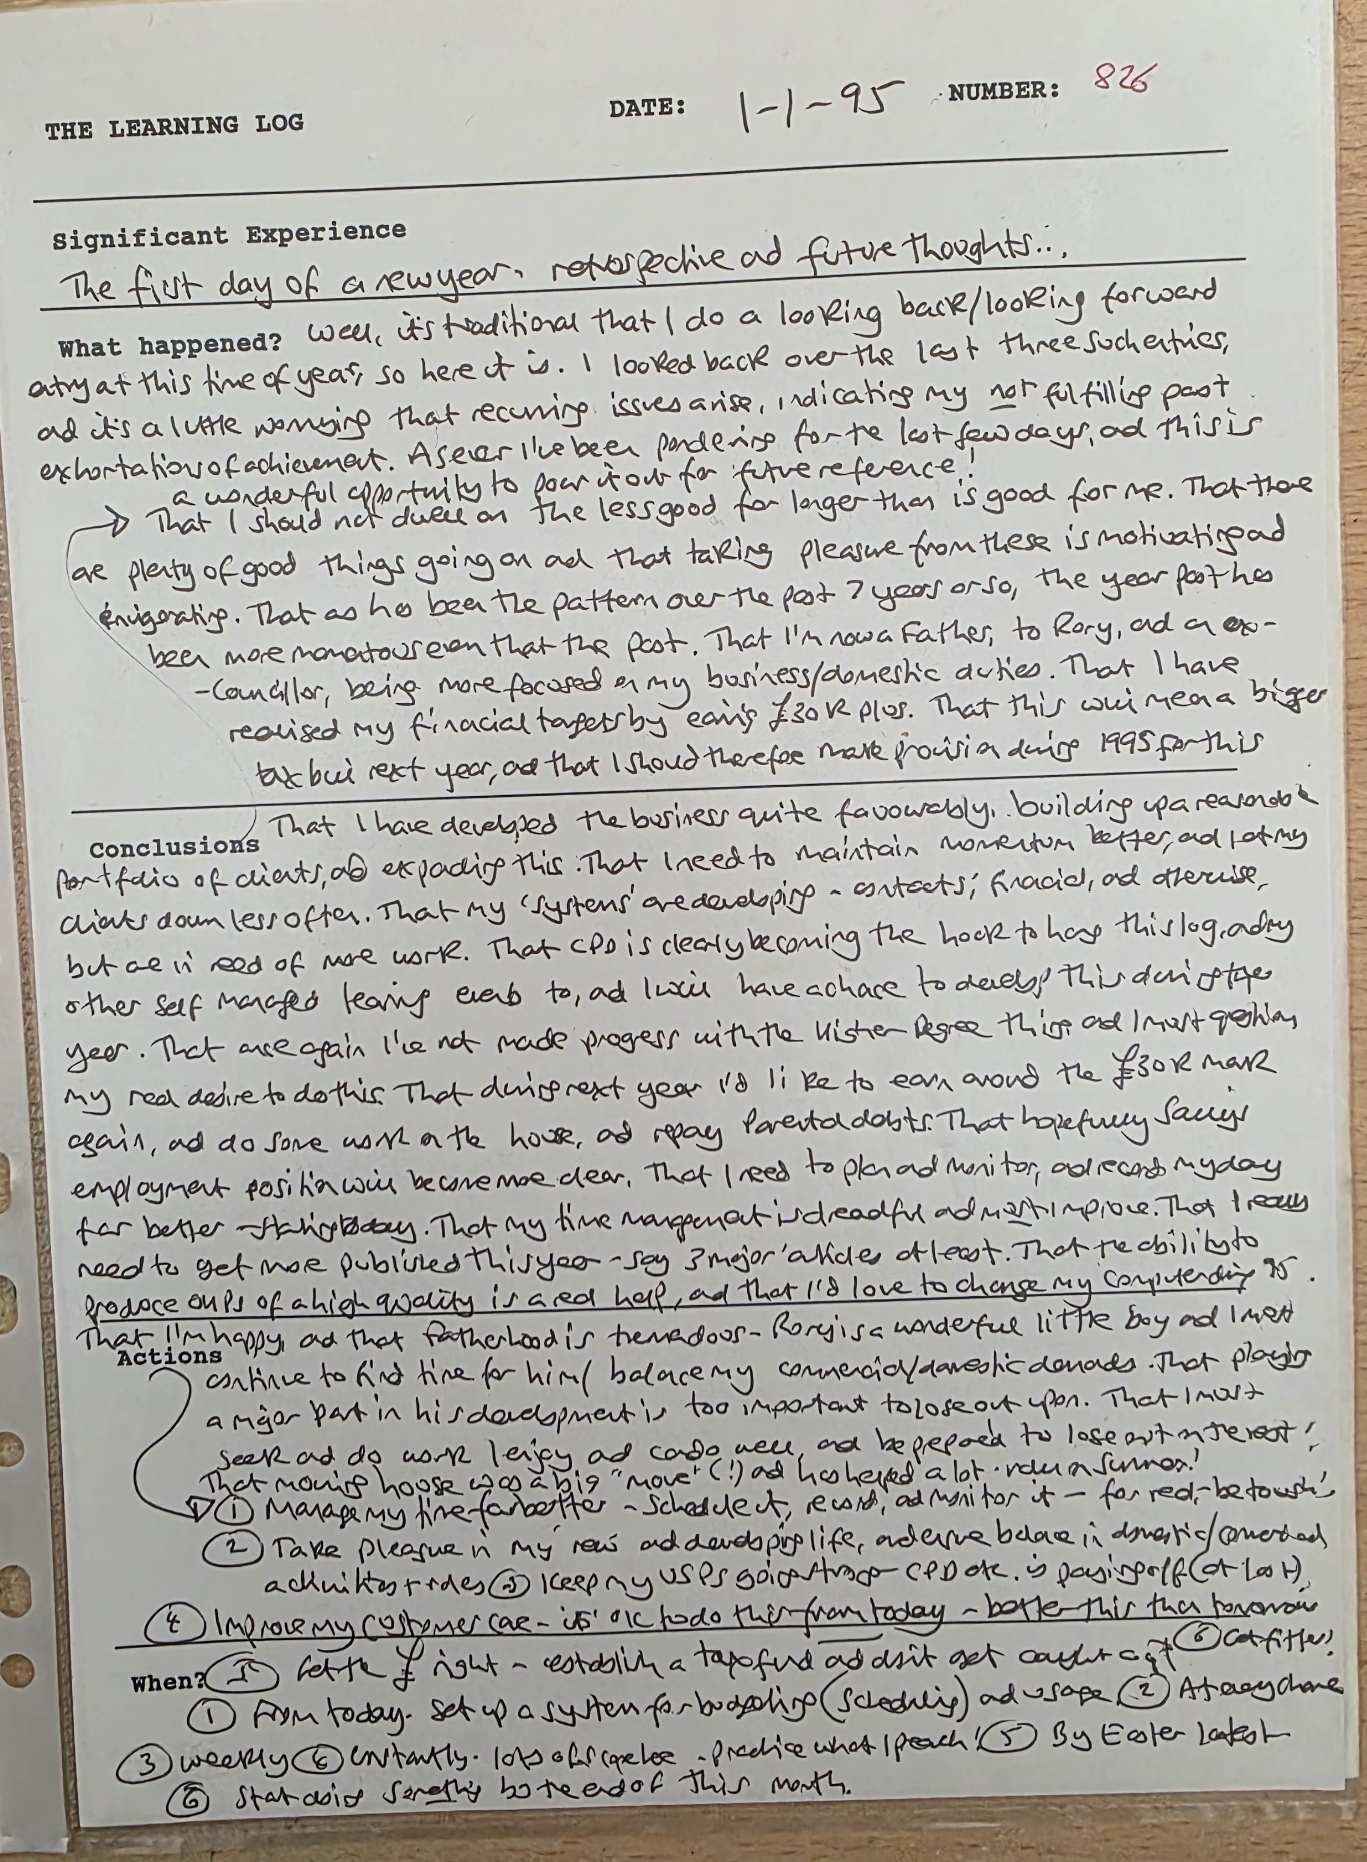 THE LEARNING LOG DATE: 1-1-95 NUMBER: 826
Significant Experience
The first day of a new year, retrospective ad future thoughts...
What happened? Well, it's traditional that I do a looking back/looking forward
entry at this time of year, so here it is. I looked back over the last three such entries,
ad it's a little worrying that recurring issues arise, indicating my not fulfilling past
exhortations of achievement. As ever I've been pondering for the last few days, ad this is
a wonderful opportunity to pour it out for future reference!
→ That I should not dwell on the less good for longer than is good for me. That there
are plenty of good things going on ad that taking pleasure from these is motivating ad
invigorating. That as has been the pattern over the past 7 years or so, the year past has
been more momentous even that the past. That I'm now a Father, to Rory, ad an ex-
-Councillor, being more focused on my business/domestic duties. That I have
realised my financial targets by earning £30K plus. That this will mean a bigger
tax bill next year, ad that I should therefore make provision during 1995 for this
Conclusions That I have developed the business quite favourably, building up a reasonable
portfolio of clients, ad expanding this. That I need to maintain momentum better, ad let my
clients down less often. That my 'systems' are developing - contacts, financial, ad otherwise,
but are in need of more work. That CPD is clearly becoming the hook to hang this log, ad my
other self managed learning events to, ad I will have a chance to develop this during the
year. That once again I've not made progress with the Higher Degree thing ad I must question
my real desire to do this. That during next year I'd like to earn around the £30K mark
again, ad do some work on the house, ad repay Parental debts. That hopefully
employment position will become more clear. That I need to plan ad monitor, ad record my day
far better - starting today. That my time management is dreadful ad must improve. That I really
need to get more published this year - say 3 major articles at least. That the ability to
produce OHPs of a high quality is a real help, ad that I'd love to change my computer during 95.
That I'm happy, ad that fatherhood is tremendous - Rory is a wonderful little boy ad I must
Actions continue to find time for him/ balance my commercial/domestic demands. That playing
a major part in his development is too important to lose out upon. That I must
seek ad do work I enjoy ad can do well, ad be prepared to lose out on the rest!
That moving house was a big "move" (!) ad has helped a lot.
① Manage my time far better - schedule it, record, ad monitor it - for real, - be tough!
② Take pleasure in my new ad developing life, ad ensure balance in domestic/commercial
activities + roles ③ Keep my USPs going strong - CPD etc. is paying off (at last)
④ Improve my customer care - it's OK to do this from today - better this than tomorrow
When? ⑤ Get the £ right - establish a tax fund ad don't get caught out ⑥ Get fitter!
① From today. Set up a system for budgeting (scheduling) ad usage ② At every chance
③ Weekly ④ Constantly. lots of scope here - practice what I preach! ⑤ By Easter latest
⑥ Start doing something by the end of this month.